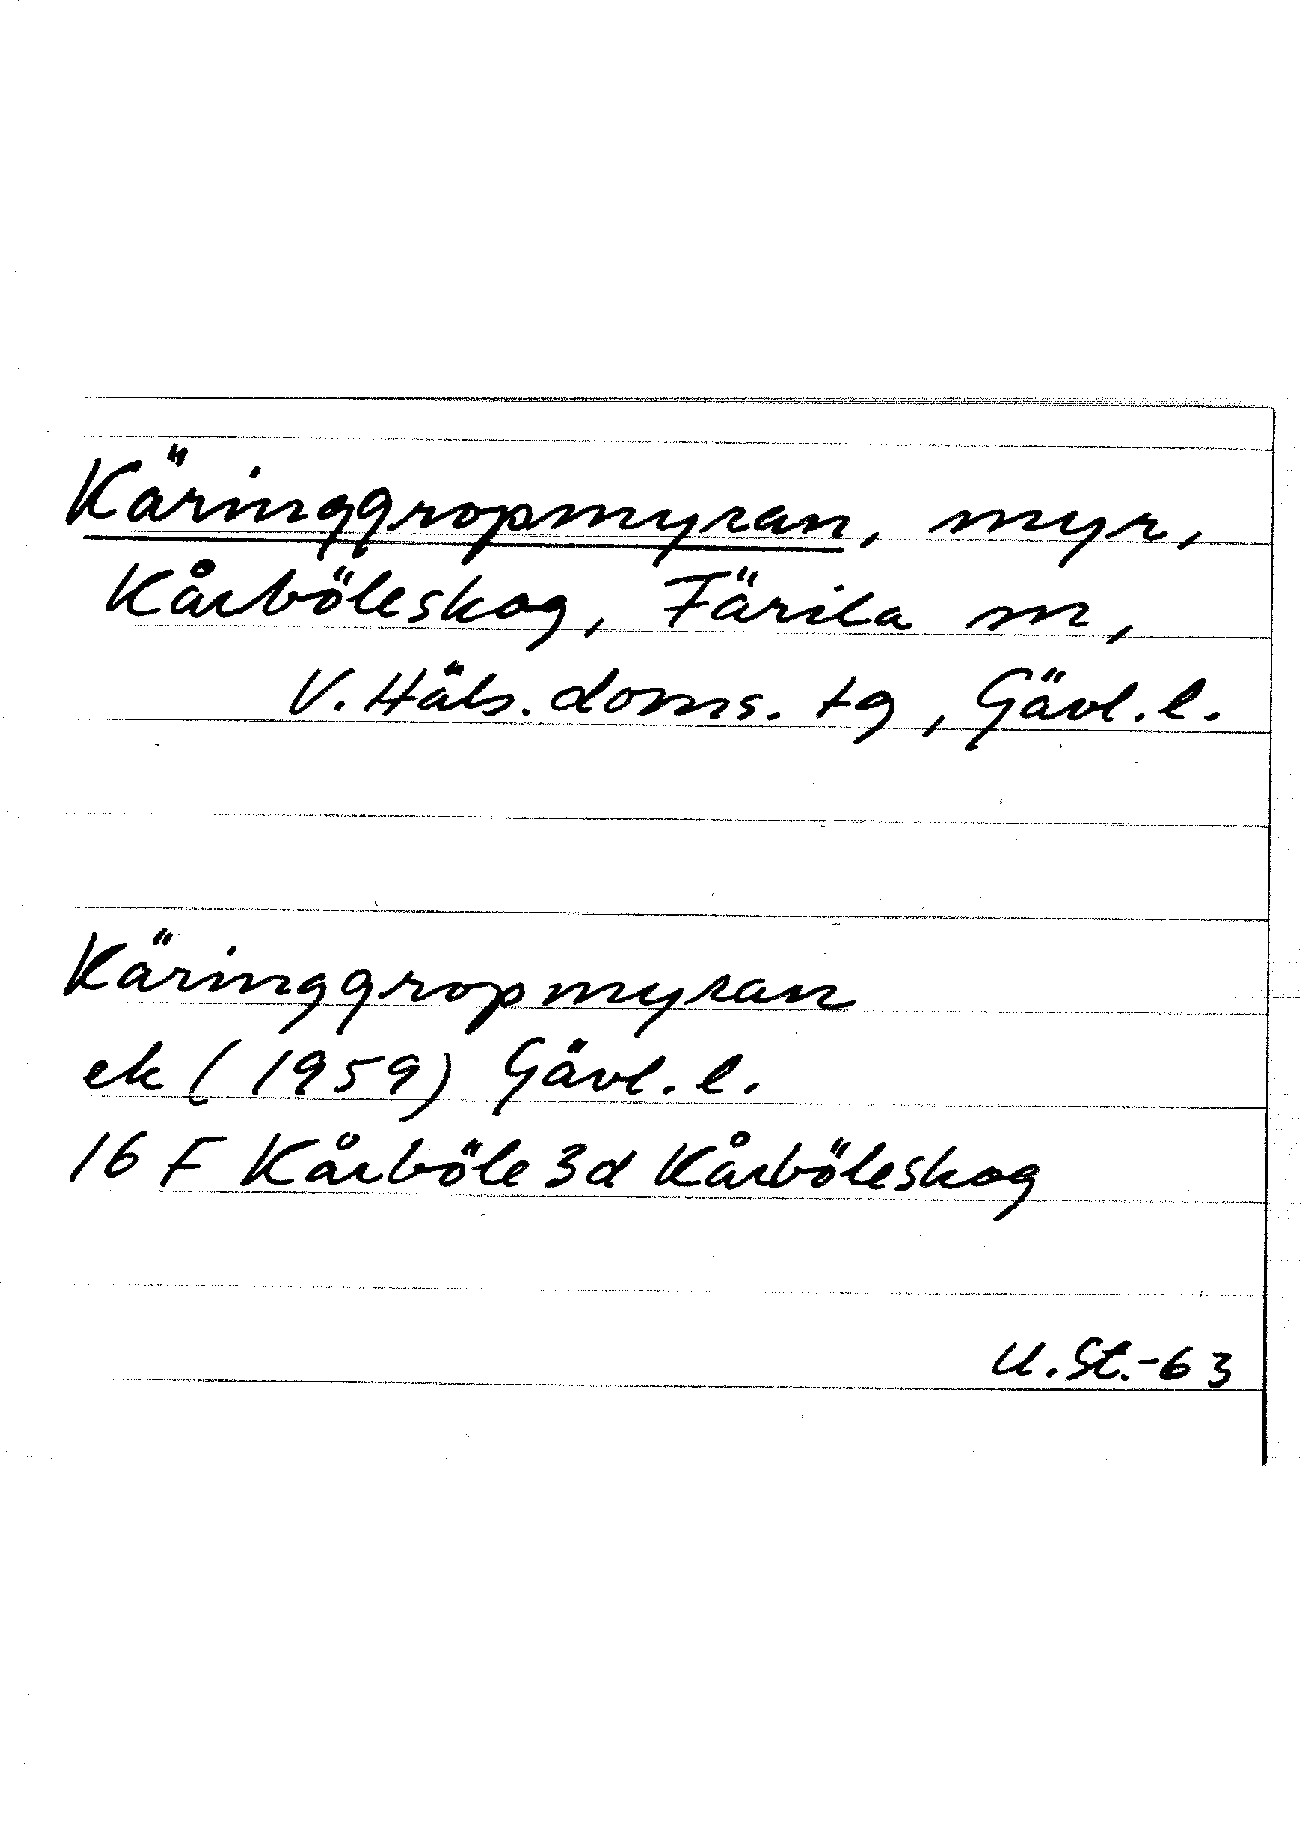 Käringgropmyran, myr,
Kårböleskog, Färila sn,
V. Häls. doms. tg, Gävl. l.
Käringgropmyran
ek (1959) Gävl. l.
16 F Kårböle 3d Kårböleskog
U. St. -63